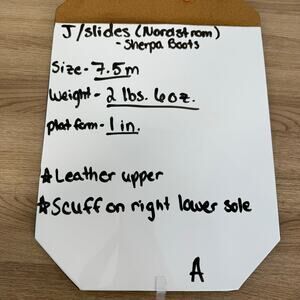 J/slides (Nordstrom)
- Sherpa Boots
Size - 7.5m
Weight - 2 lbs. 6oz.
platform - 1 in.
☆Leather upper
☆Scuff on right lower sole
A